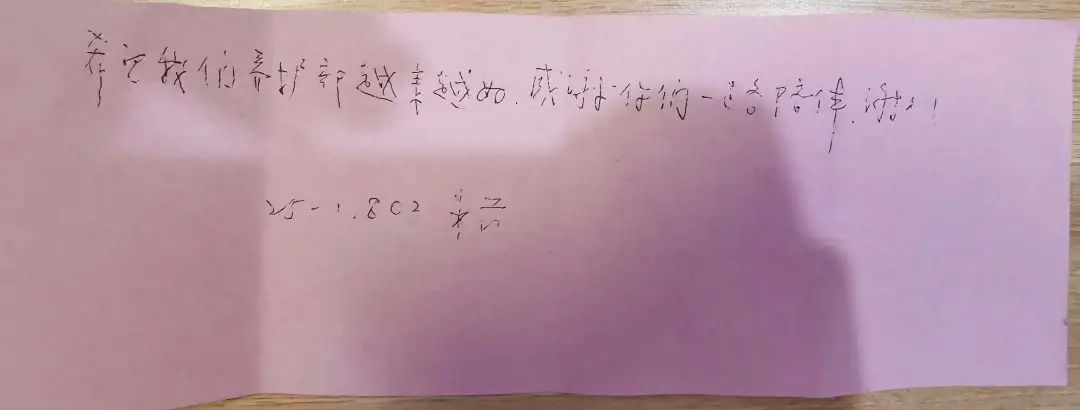 希望我们养护部越来越好.感谢你们一路陪伴.谢谢!
25-1.802